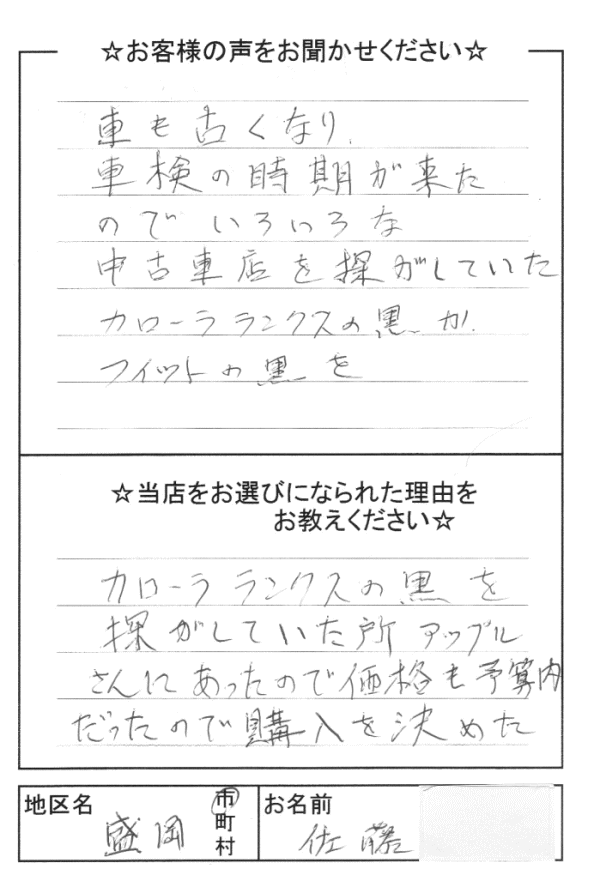 ☆お客様の声をお聞かせください☆
車も古くなり、
車検の時期が来た
のでいろいろな
中古車店を探がしていた
カローラランクスの黒か、
フィットの黒を
☆当店をお選びになられた理由を
お教えください☆
カローラランクスの黒を
探がしていた所アップル
さんにあったので価格も予算内
だったので購入を決めた
地区名 盛岡 市町村 お名前 佐藤